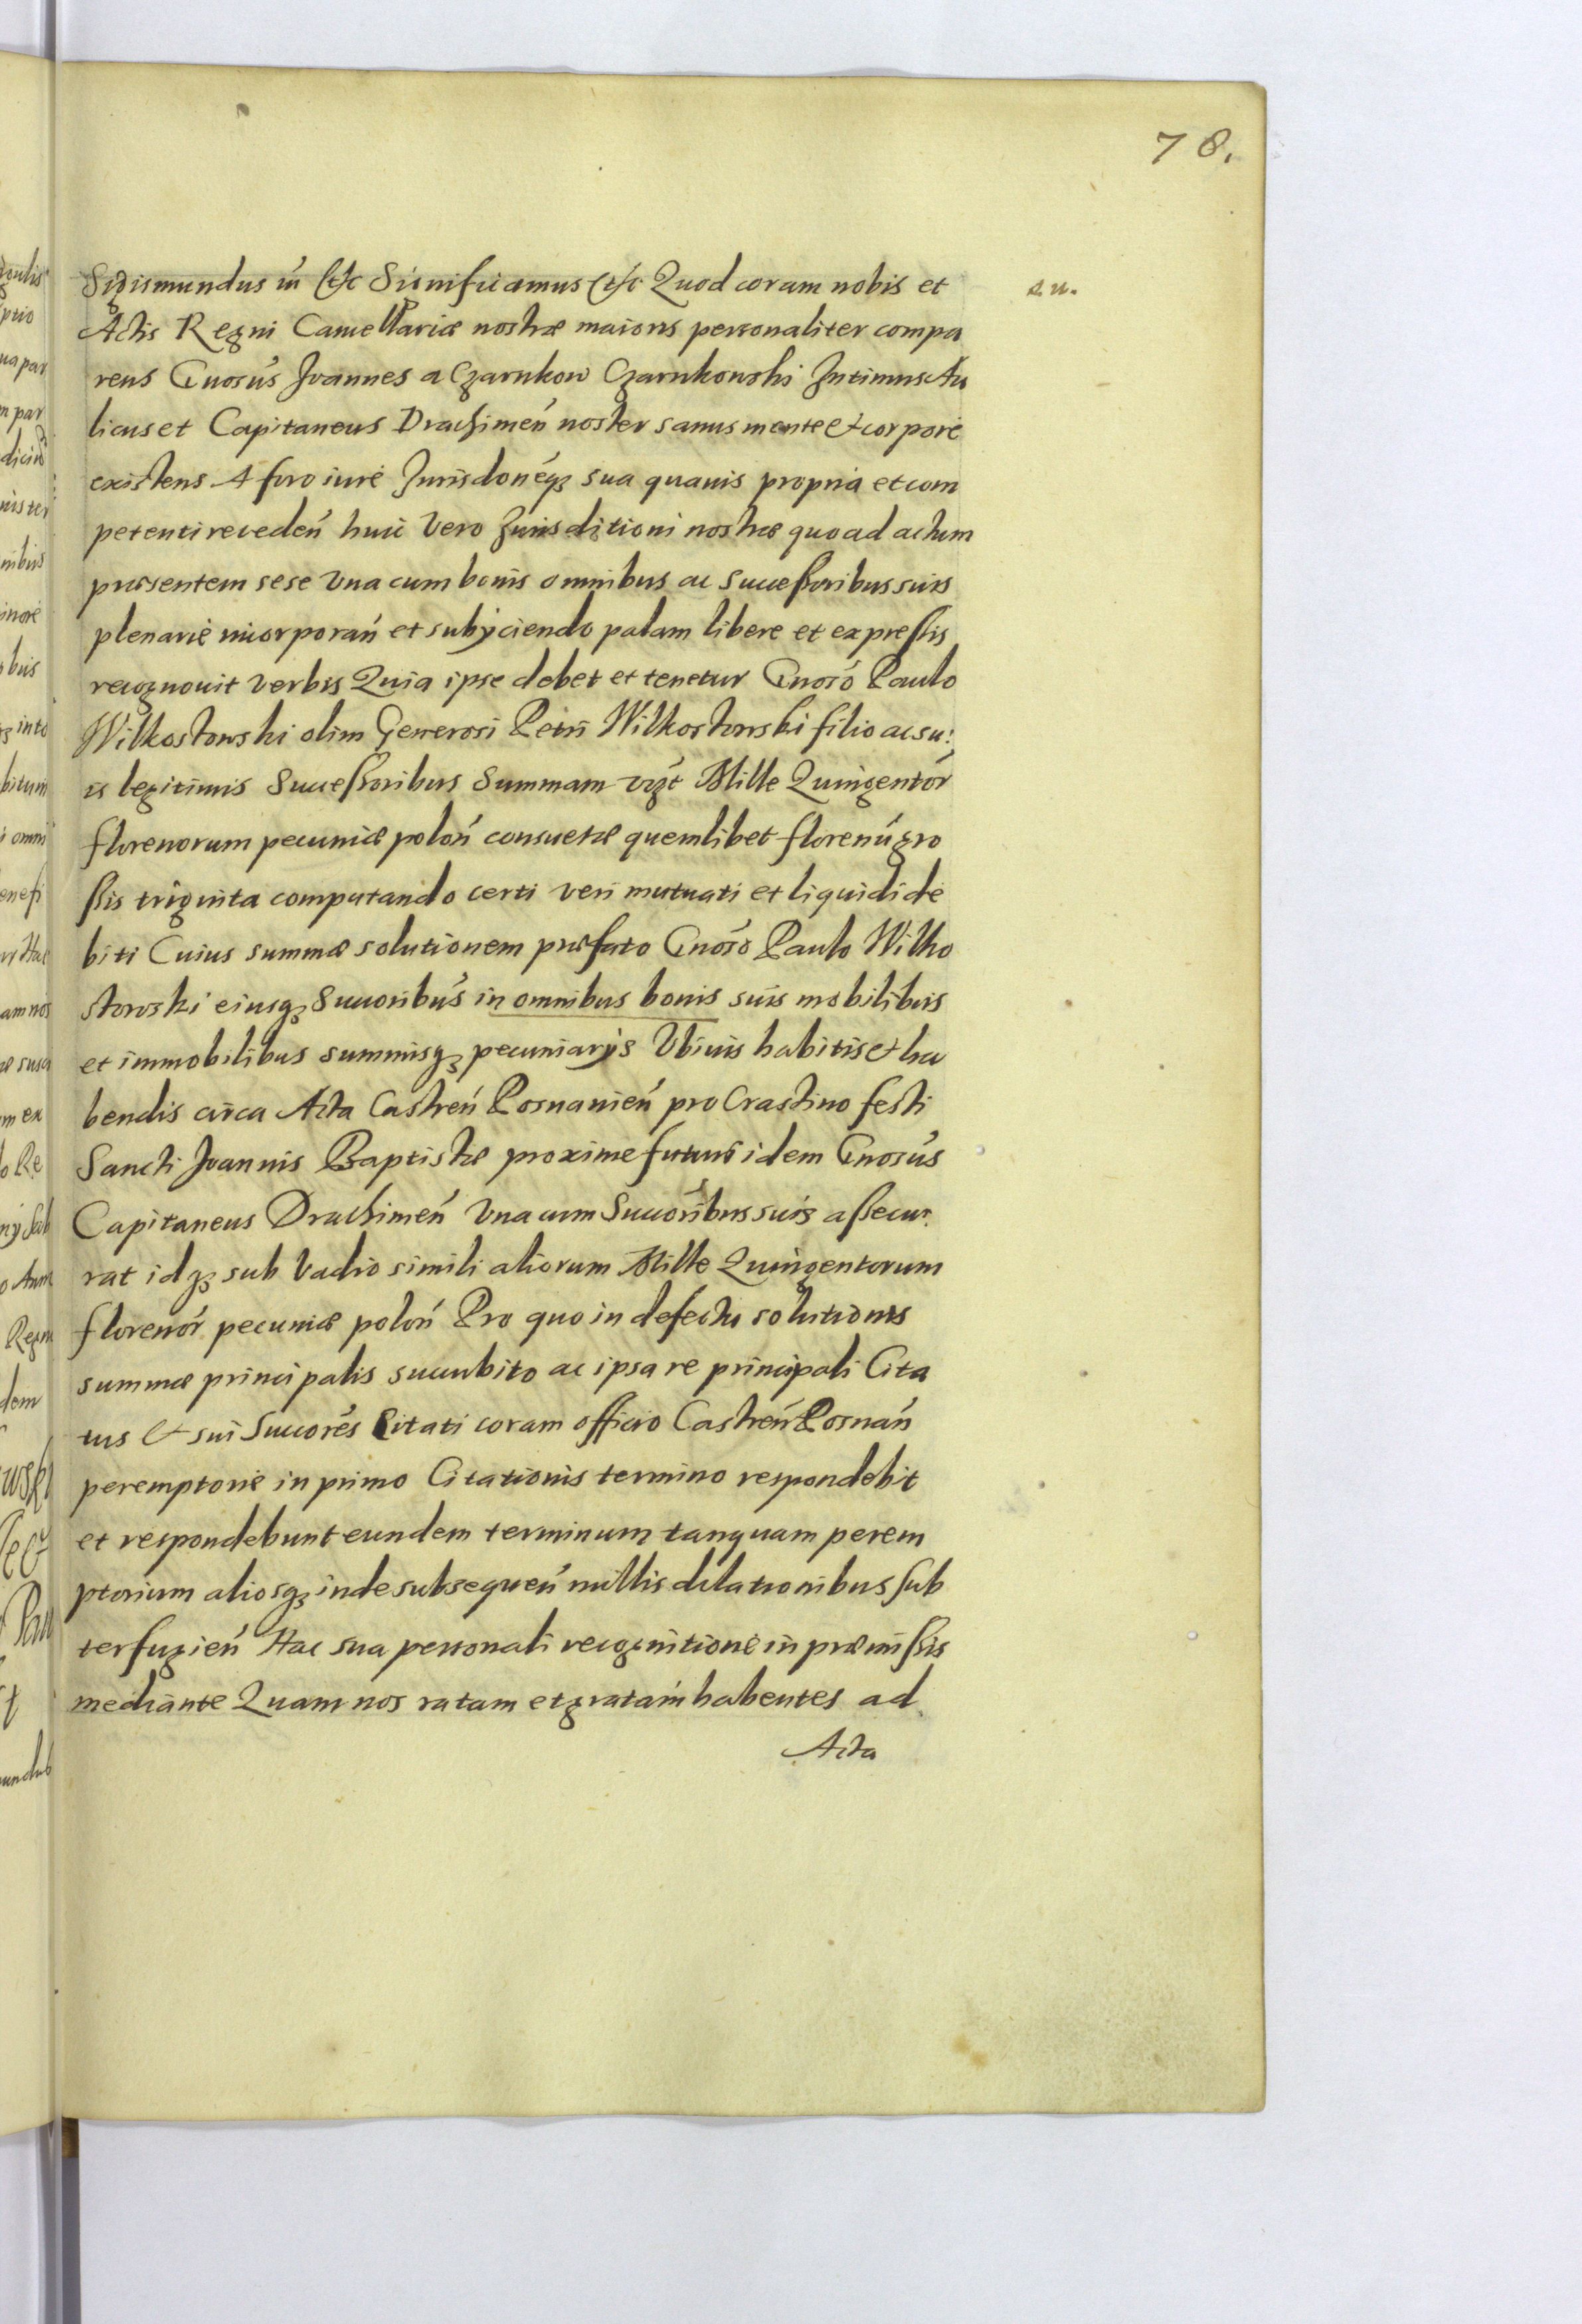 78.
Sigismundus iii etc Significamus etc Quod coram nobis et
Actis Regni Cancellariæ nostræ maioris personaliter compa
rens Gnosus Joannes a Czarnkow Czarnkowski Intimus Au
licus et Capitaneus Drachimeń noster sanus mente et corpore
existens A foro iure Jurisdonéqz sua quauis propria et com
petenti receden̄ huic vero Jurisditioni nostræ quo ad actum
præsentem sese vna cum bonis omnibus ac Successoribus suis
plenarie incorporań et subijciendo palam libere et expressis
recognouit verbis Quia ipse debet et tenetur Gnoso Paulo
Wilkostowski olim Generosi Petri Wilkostowski filio ac su:
is legitimis Successoribus Summam vzt Mille Quingentor
florenorum pecuniæ poloń consuetæ quemlibet florenú gro
ssis triginta computando certi veri mutuati et liquidi de
biti Cuius summæ solutionem præfato Gnoso Paulo Wilko
stowski eiusqz Succoribus in omnibus bonis suis mobilibus
et immobilibus summisqz pecuniarijs Vbiuis habitis et ha
bendis circa Acta Castreń Posnanień pro Crastino festi
Sancti Joannis Baptistæ proxime futuri idem Gnosus
Capitaneus Drachimeń vna cum Succoribus suis assecu:
rat idqz sub vadio simili aliorum Mille Quingentorum
florenor pecuniæ poloń Pro quo in defectu solutionis
summæ principalis succubito ac ipsa re principali Cita
tus et sui Succores Citati coram officio Castreń Posnań
peremptorie in primo Citationis termino respondebit
et respondebunt eundem terminum tanquam perem
ptorium aliosqz inde subsequeń nullis dilationibus sub
terfugień Hac sua personali recognitione in præmissis
mediante Quam nos ratam et gratam habentes ad
Acta